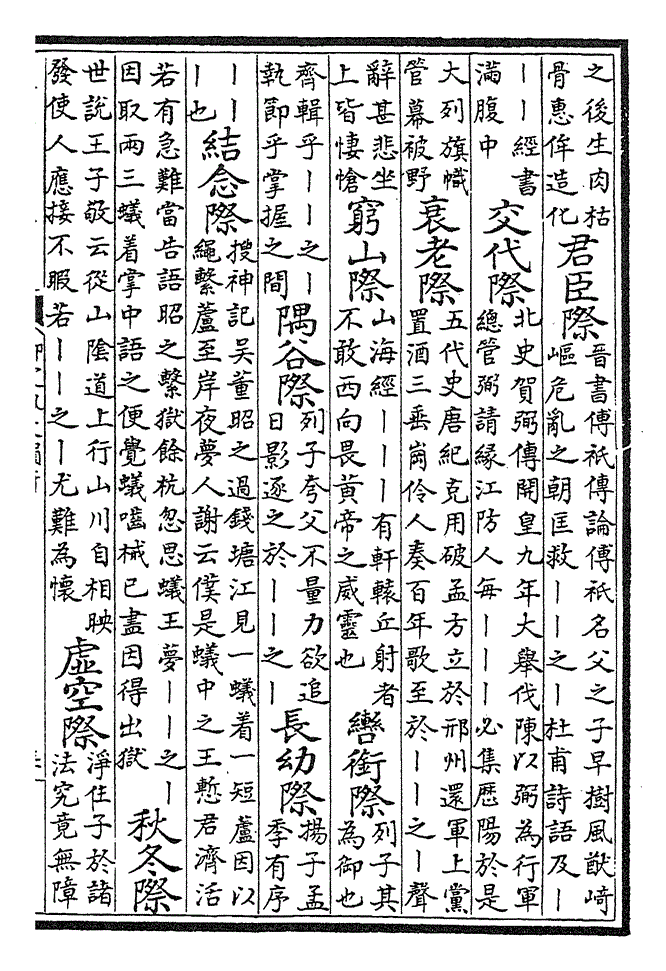 之後生肉枯骨惠侔造化君臣際晉書傅祗傳論傅祗名父之子早樹風猷崎嶇危亂之朝匡救丨丨之丨杜甫詩語及丨
丨丨經書滿腹中交代際北史賀弼傳開皇九年大舉伐陳以弼為行軍總管弼請緣江防人每丨丨丨必集歴陽於是
大列旗幟管幕被野衰老際五代史唐紀克用破孟方立於邢州還軍上黨置酒三垂崗伶人奏百年歌至於丨丨之丨聲
辭甚悲坐上皆悽愴窮山際山海經丨丨丨有軒轅丘射者不敢西向畏黄帝之威靈也轡銜際列子其為御也
齊輯乎丨丨之丨執節乎掌握之間隅谷際列子夸父不量力欲追日影逐之於丨丨之丨長幼際揚子孟季有序
丨丨丨也結念際搜神記吳董昭之過錢塘江見一蟻着一短蘆因以繩繫蘆至岸夜夢人謝云僕是蟻中之王慙君濟活
若有急難當告語昭之繫獄餘杭忽思蟻王夢丨丨之丨因取兩三蟻着掌中語之便覺蟻嚙械已盡因得出獄秋冬際
世說王子敬云從山陰道上行山川自相映發使人應接不暇若丨丨之丨尤難為懷虛空際淨住子於諸法究竟無障